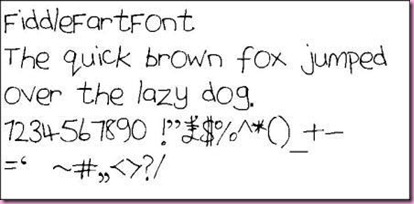 FiddleFartFont
The quick brown fox jumped
over the lazy dog.
1234567890 !"£$%^*()_+-
=‘ ~#„<>?/